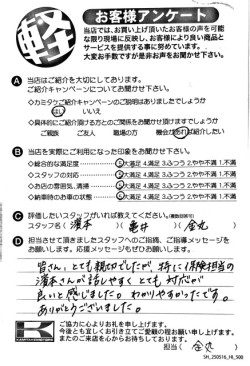 軽
お客様アンケート
当店では、お買い上げ頂いたお客様の声を可能
な限り現場に反映し、お客様により良い商品と
サービスを提供する事に努めています。
大変お手数ですが是非お声をお聞かせ下さい。
A 当店はご紹介を大切にしております。
ご紹介キャンペーンについてお聞かせ下さい。
◇カミタケご紹介キャンペーンのご説明はありましたでしょうか
はい いいえ
◇具体的にご紹介頂ける方とのご関係をお聞かせ頂けますでしょうか
ご親族 ご友人 職場の方 機会があれば紹介したい
B 当店を実際にご利用になった印象をお聞かせ下さい。
◇総合的な満足度 5大満足 4.満足 3.ふつう 2.やや不満 1.不満
◇スタッフの対応 5大満足 4.満足 3.ふつう 2.やや不満 1.不満
◇お店の雰囲気、清掃 5大満足 4.満足 3.ふつう 2.やや不満 1.不満
◇納車時のお車の状態 5大満足 4.満足 3.ふつう 2.やや不満 1.不満
C 評価したいスタッフがいれば教えてください。(複数回答可)
スタッフ名( 濱本 )( 亀井 )( 金丸 )
D 担当させて頂きましたスタッフへのご指摘、ご指導メッセージを
お願いします。応援メッセージもぜひお願いします。
皆さん、とても親切でしたが 特に保険担当の
濱本さんが話しやすく とても 対応が
良いと感じました。わかりやすかったです。
ありがとうございました。
ご協力に心よりお礼を申し上げます。
今後とも宜しくお引き立てご愛顧の程お願い申し上げます。
またのご来店を心からお待ちしております。
担当( 金丸 )
SH_250516_HI_500